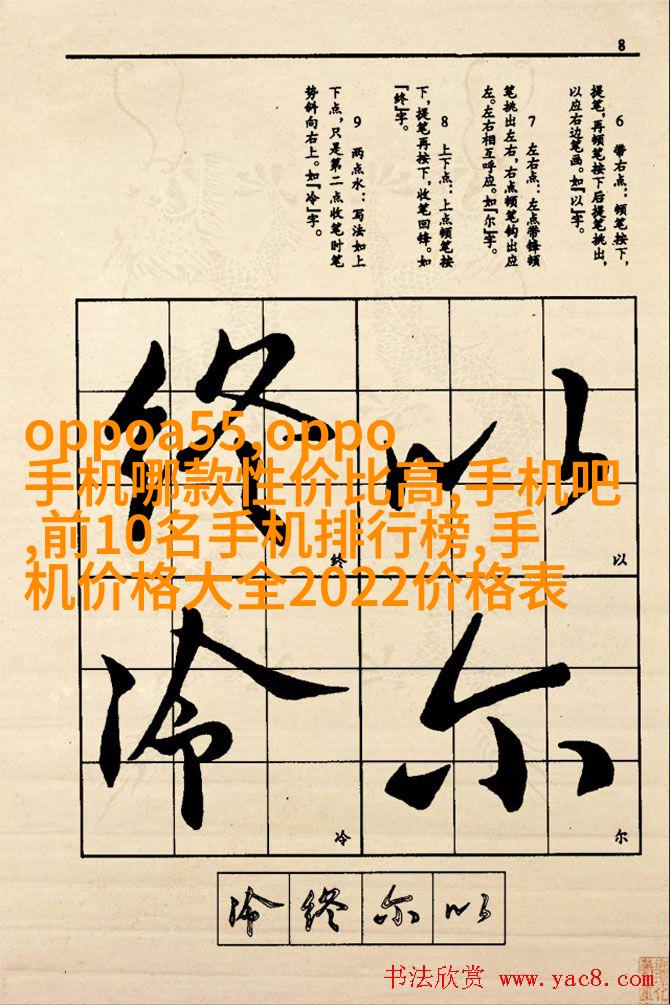 8
6　带右点：顿笔按下，
提笔，再顿笔按下后提笔挑出，
以应右边笔画。如『以』字。
7　左右点：左点带锋顿
笔挑出左右，右点顿笔钩出应
左。左右相互呼应。如『尔』字。
8　上下点：上点顿笔按
下，提笔再按下，收笔回锋。如
『终』字。
9　两点水：写法如上
下点，只是第二点收笔时笔
势斜向右上。如『冷』字。
以
终
尔
冷
oppoa55,oppo
手机哪款性价比高,手机吧
,前10名手机排行榜,手
机价格大全2022价格表
终
以
冷
尔
冷终尔以
书法欣赏 www.yac8.com